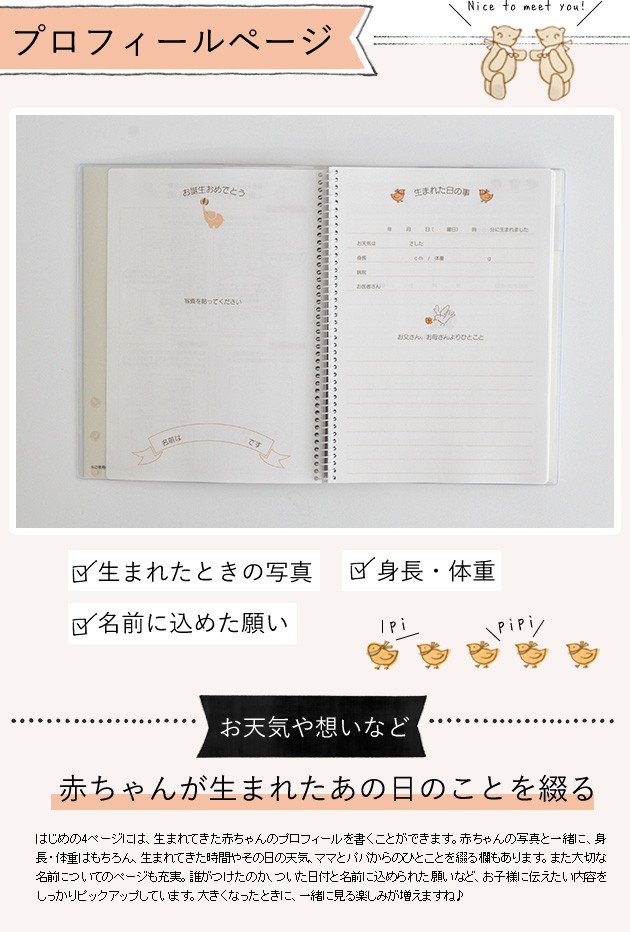 Nice to meet you!
プロフィールページ
お誕生おめでとう
写真を貼ってください
名前は です
生まれた日の事
年 月 日( 曜日) 時 分に生まれました
お天気は でした
身長 cm / 体重 g
病院
お医者さん
お父さん、お母さんよりひとこと
生まれたときの写真
身長・体重
名前に込めた願い
1pi
pipi
お天気や想いなど
赤ちゃんが生まれたあの日のことを綴る
はじめの4ページには、生まれてきた赤ちゃんのプロフィールを書くことができます。赤ちゃんの写真と一緒に、身
長・体重はもちろん、生まれてきた時間やその日の天気、ママとパパからのひとことを綴る欄もあります。また大切な
名前についてのページも充実。誰がつけたのか、ついた日付と名前に込められた願いなど、お子様に伝えたい内容を
しっかりピックアップしています。大きくなったときに、一緒に見る楽しみが増えますね♪